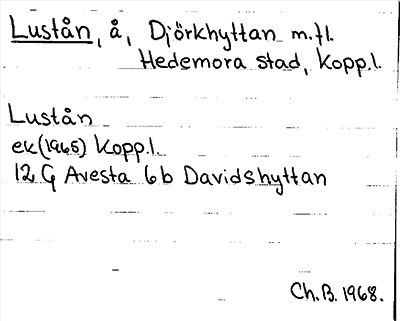 Lustån, å, Djörkhyttan m.fl.
Hedemora stad, Kopp.l.
Lustån
ek(1965) Kopp.l.
12 G Avesta 6b Davidshyttan
Ch.B. 1968.